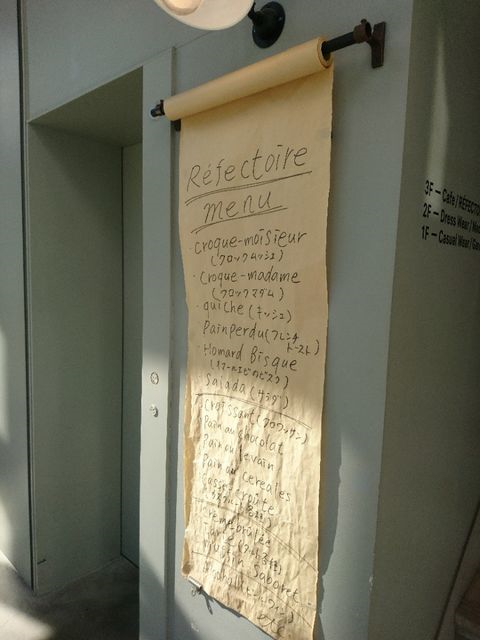 Réfectoire
menu
・croque-moisieur
(クロックムッシュ)
・croque-madame
(クロックマダム)
・quiche(キッシュ)
・Painperdu(フレンチ
トースト)
・Homard Bisque
(オマールエビのビスク)
・Salada(サラダ)
Croissant(クロワッサン)
Pain au chocolat
Pain au levain
Pain au cereales
Casse-croûte
Crème brûlée
Tarte
3F — Cafe / RÉFECTO
2F — Dress Wear /
1F — Casual Wear /